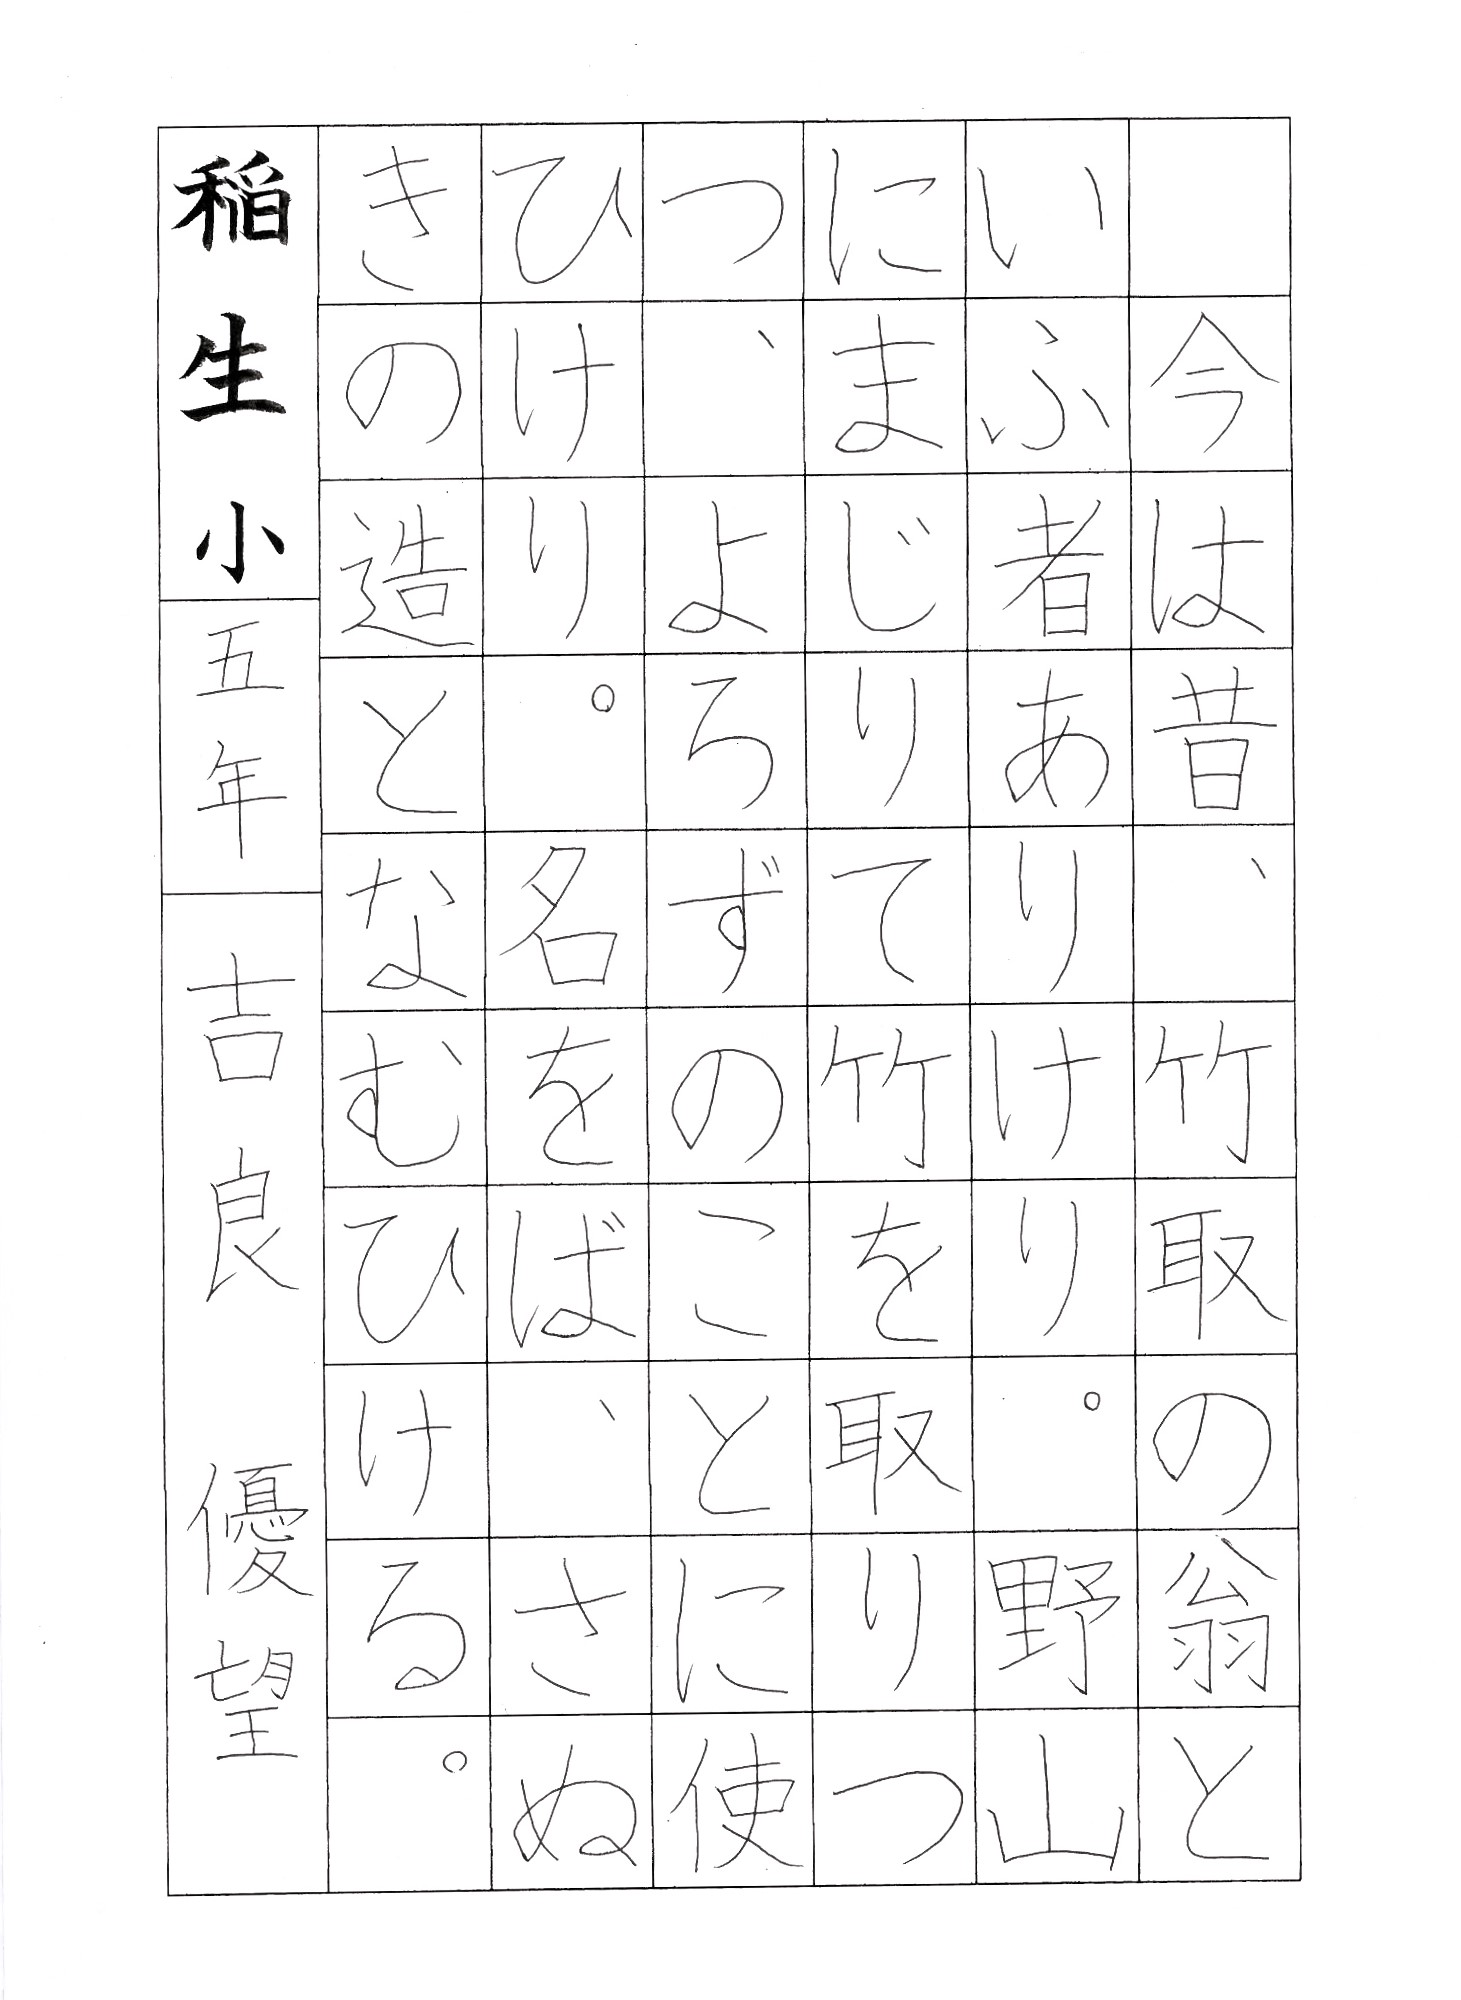 今は昔、竹取の翁と
いふ者ありけり。野山
にまじりて竹を取りつ
つ、よろずのことに使
ひけり。名をば、さぬ
きの造となむひける。
稲生小五年吉良優望